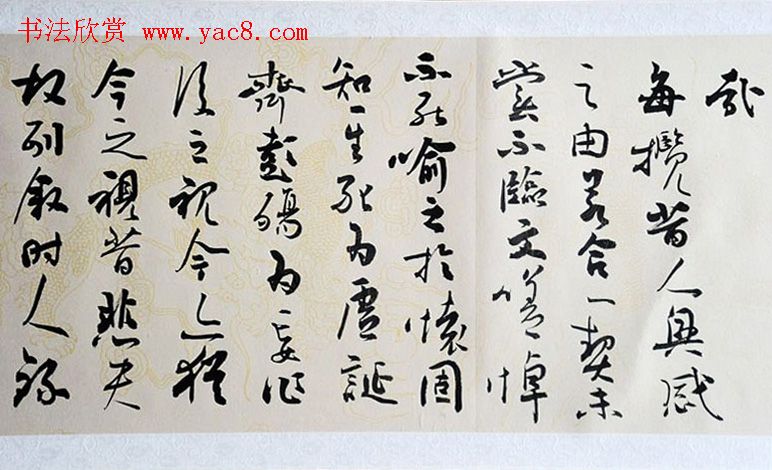 书法欣赏 www.yac8.com
哉
每攬昔人興感
之由若合一契未
嘗不臨文嗟悼
不能喻之於懷固
知一生死为虛誕
齊彭殤为妄作
後之視今亦猶
今之視昔悲夫
故列叙时人錄